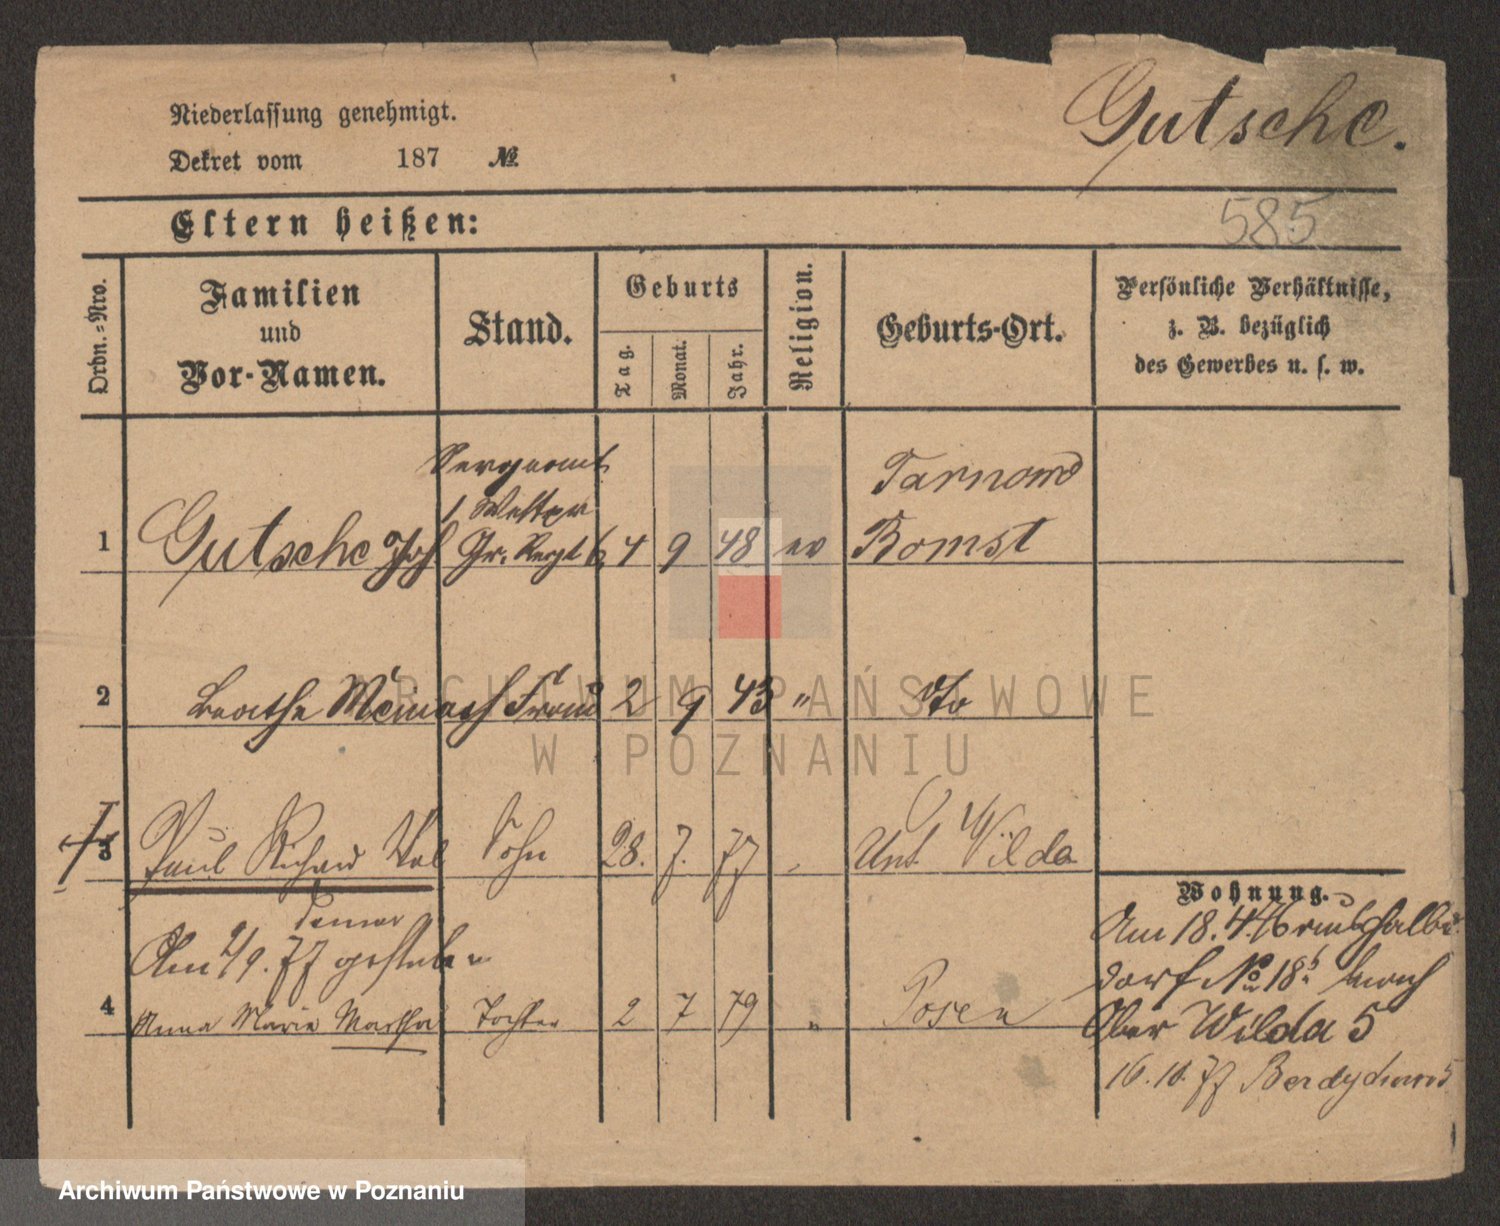 Niederlassung genehmigt.
Gutsche.
Dekret vom 187 №
585
Eltern heißen:
Ordn.-Nro.
Familien
und
Vor-Namen.
Stand.
Geburts
Tag.
Monat.
Jahr.
Religion.
Geburts-Ort.
Persönliche Verhältnisse,
z. B. bezüglich
des Gewerbes u. s. w.
Sergeant Tarnowo
1 Westpr
1 Gutsche Joh Gr. Regt 6 4 9 48 ev Bomst
2 Beathe Frau 2 9 43 " dto
3 Paul Richard Sohn 28. 7. 77 Unt. Wilda
Wohnung.
Am 18. 4. 76
Am 2/9. 77 gestorben
dorf No 18 nach
4 Anna Marie Martha Tochter 2 7 79 " Posen
Ober Wilda 5
16. 10. 77 Berdychowo
ARCHIWUM PAŃSTWOWE
W POZNANIU
Archiwum Państwowe w Poznaniu